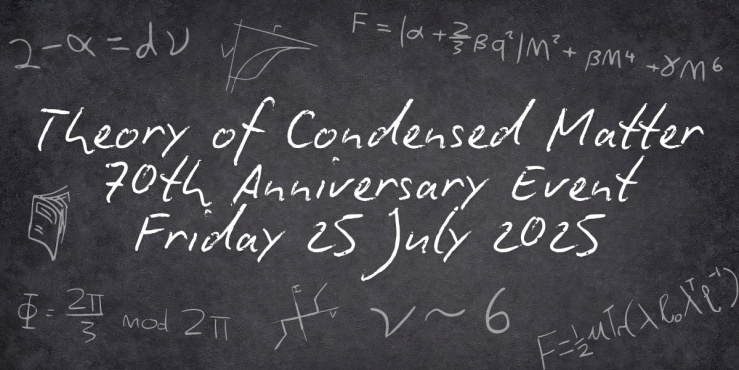 2-α=dν
F=|α+2/3βq²|M²+βM⁴+γM⁶
Theory of Condensed Matter
70th Anniversary Event
Friday 25 July 2025
Φ=2π/3 mod 2π
I
V
ν~6
F=½μTr(λℓ₀λᵀℓ⁻¹)